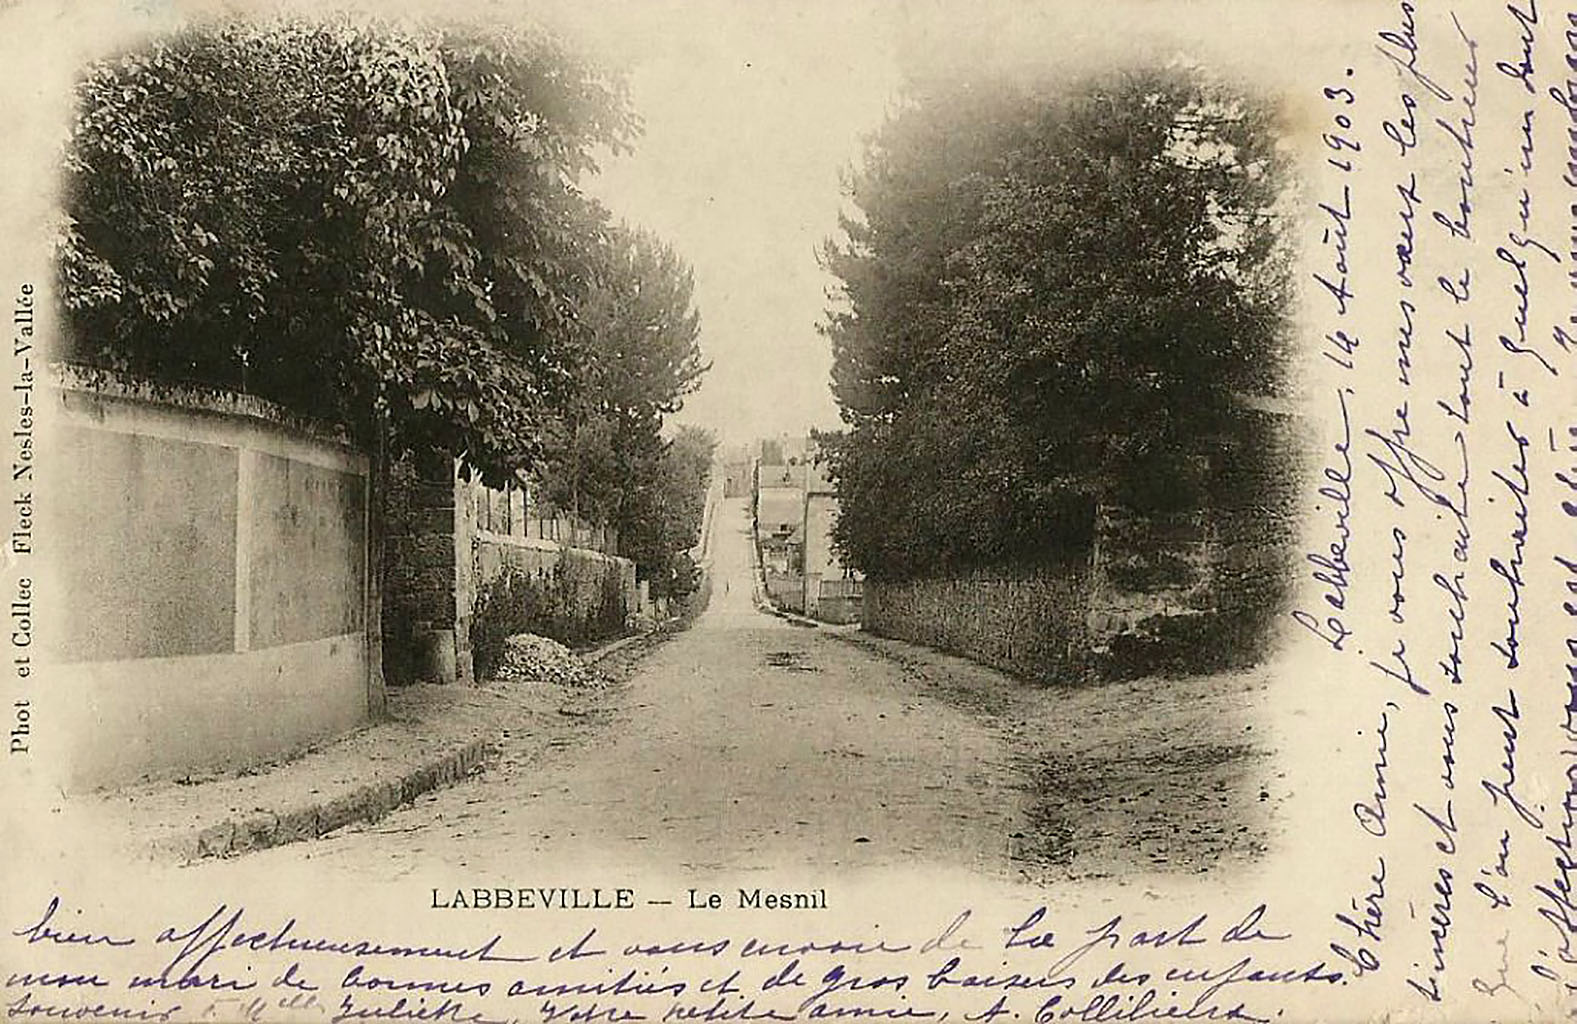 Phot et Collec Fleck Nesles-la-Vallée
LABBEVILLE — Le Mesnil
Labbeville, 14 Août 1903.
Chère Amie, je vous offre mes vœux les plus
sincères et vous souhaite tout le bonheur
que l'on peut souhaiter à quelqu'un dont
l'affection vous est chère. Je vous embrasse
bien affectueusement et vous envoie de la part de
mon mari de bonnes amitiés et de gros baisers des enfants.
Souvenir à Melle Juliette, Votre petite amie, A.